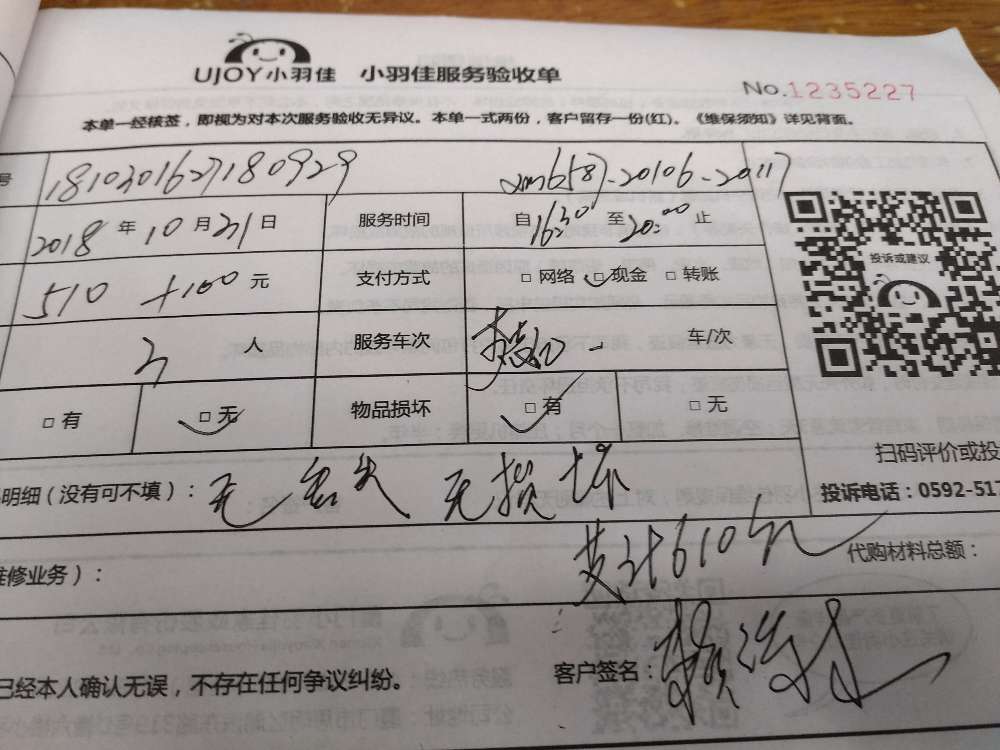 UJOY小羽佳 小羽佳服务验收单
No.1235227
本单一经核签，即视为对本次服务验收无异议。本单一式两份，客户留存一份(红)。《维保须知》详见背面。
号 181030162718 0929
2018 年 10 月 31 日 服务时间 自 16:30 至 20:00 止
投诉或建议
510 +100 元 支付方式 □ 网络 □ 现金 □ 转账
人 服务车次 车/次
□ 有 □ 无 物品损坏 □ 有 □ 无
扫码评价或投
明细（没有可不填）： 无丢失 无损坏
投诉电话：0592-517
共计610元 代购材料总额：
维修业务）：
已经本人确认无误，不存在任何争议纠纷。 客户签名：